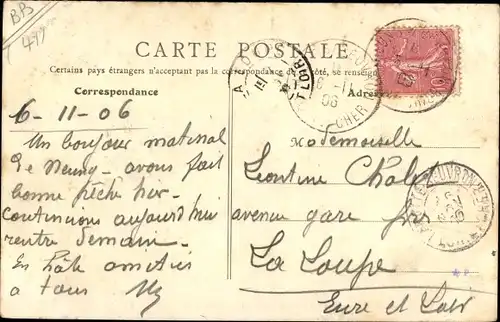 BB
CARTE POSTALE
Certains pays étrangers n'acceptant pas la correspondance de ce côté, se renseigner
Correspondance
Adresse
6-11-06
Un bonjour matinal
de Neung - avons fait
bonne pêche hier.
Continuons aujourd'hui
rentre demain.
En hâte amitiés
a tous
Mademoiselle
Léontine Chalet
avenue gare près
La Loupe
Eure et Loir